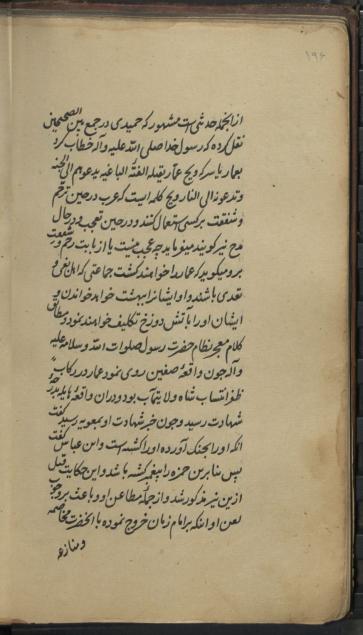 ۱۹۶
از انجمله حدیثی است مشهور که حمیدی در جمع بین الصحیحین
نقل کرده که رسول خدا صلی الله علیه وآله خطاب کرد
بعمار یاسر که ویح عمار یقتله الفئة الباغیه یدعوهم الی الجنه
وتدعونه الی النار ویح کلمه است که عرب در حین ترحم
و شفقت بر کسی استعمال کنند و در حین تعجب و در حال
مدح نیز کویند میفرماید چه عجب نیست یا از بابت رحم و شفقت
برو میکوید که عمار را خواهند کشت جماعتی که اهل بغی و
تعدی باشند و او ایشانرا ببهشت خواهد خواندن و
ایشان او را بآتش دوزخ تکلیف خواهند نمود و مطابق
کلام معجز نظام حضرت رسول صلوات الله وسلامه علیه
وآله چون واقعهٔ صفین روی نمود عمار در رکاب
ظفر انتساب شاه ولایتمآب بود و در ان واقعهٔ هایله بدرجه
شهادت رسید و چون خبر شهادت او بمعویه رسید کفت
انکه او را بجنک آورده او را کشته است و ابن عباس کفت
پس بنابرین حمزه را پیغمبر کشته باشد و این حکایت قبل
ازین نیز مذکور شد و از جملهٔ مطاعن او و باعث بر وجوب
لعن او انکه بر امام زمان خروج نموده با انحضرت مخاصمه
ومنازعه